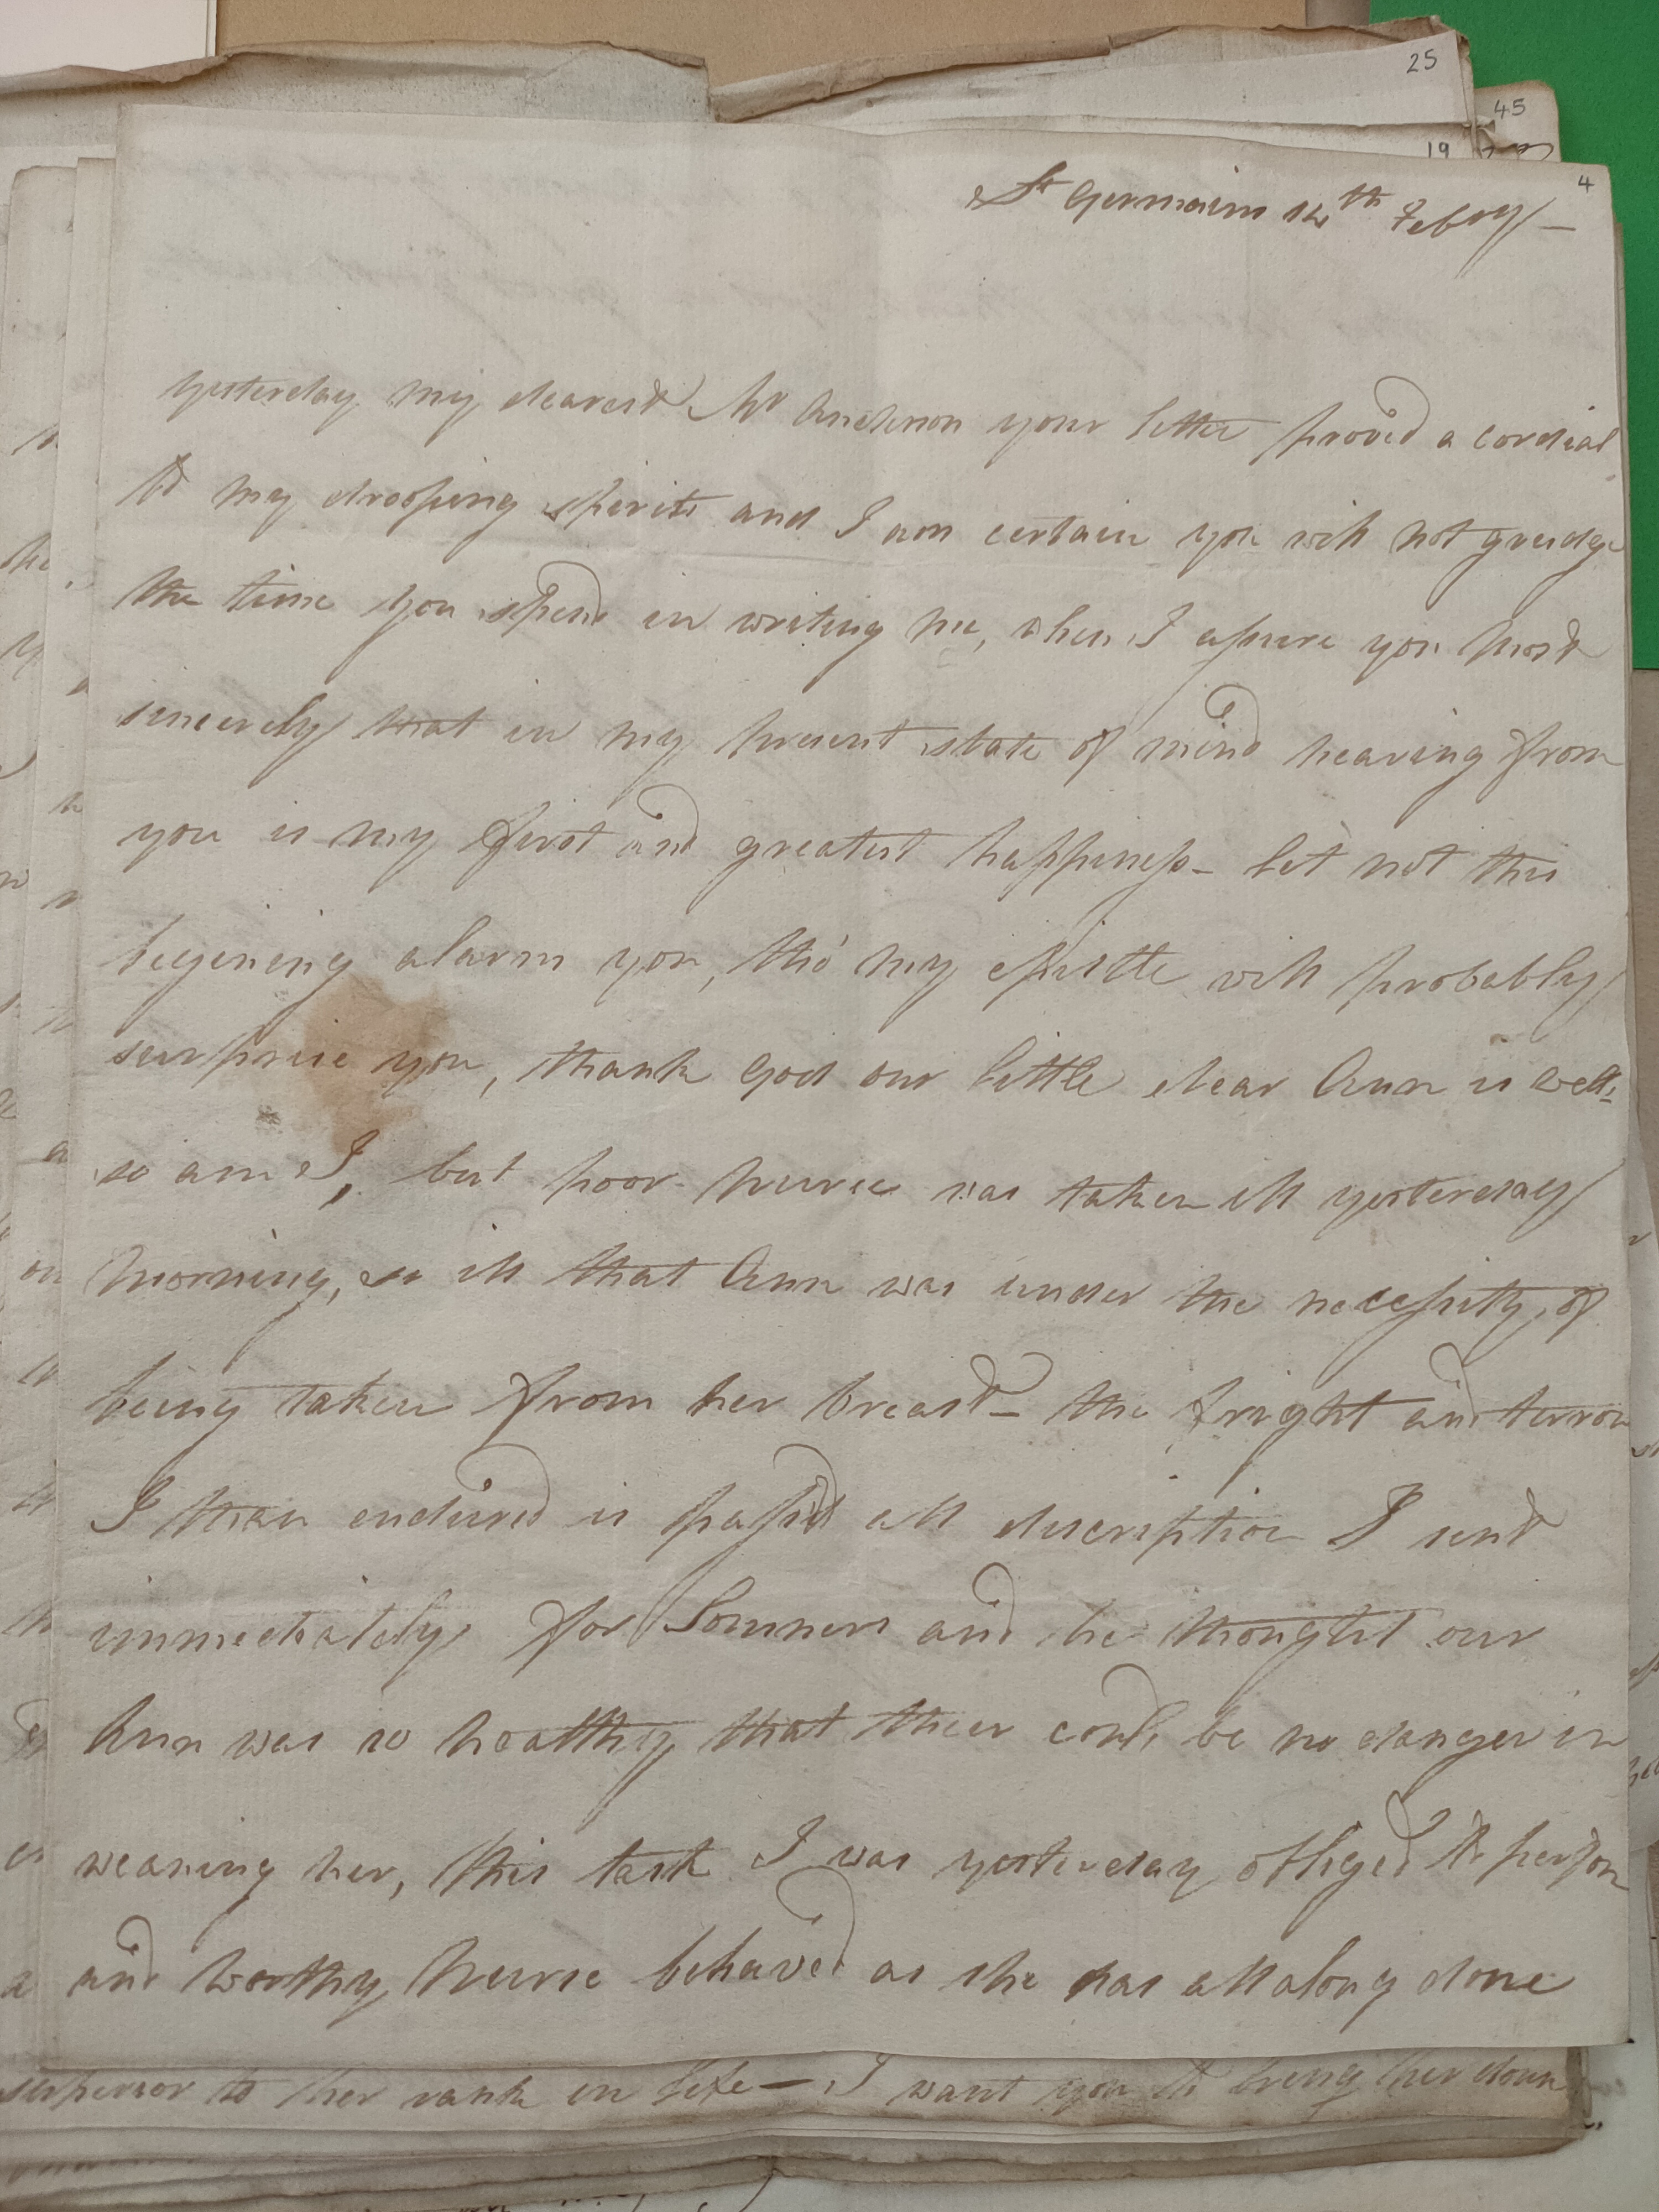 25
45
19
4
St Germains 12th Febry –
yesterday my dearest Mr Anderson your letter proved a cordial
to my drooping spirits and I am certain you will not grudge
the time you spend in writing me, when I assure you most
sincerely that in my present state of mind hearing from
you is my first and greatest happiness – let not this
begining alarm you, tho' my epistle will probably
surprise you, thank God our little dear Ann is well,
so am I, but poor nurse was taken ill yesterday
morning, so ill that Ann was under the necessity of
being taken from her breast – the fright and terror
I than endured is passed all description I sent
immediately for Sommers and he thought our
Ann was so healthy that their could be no danger in
weaning her, this task I was yesterday obliged to perform
and worthy nurse behaved as she has all along done
superior to her rank in life – I want you to bring her down